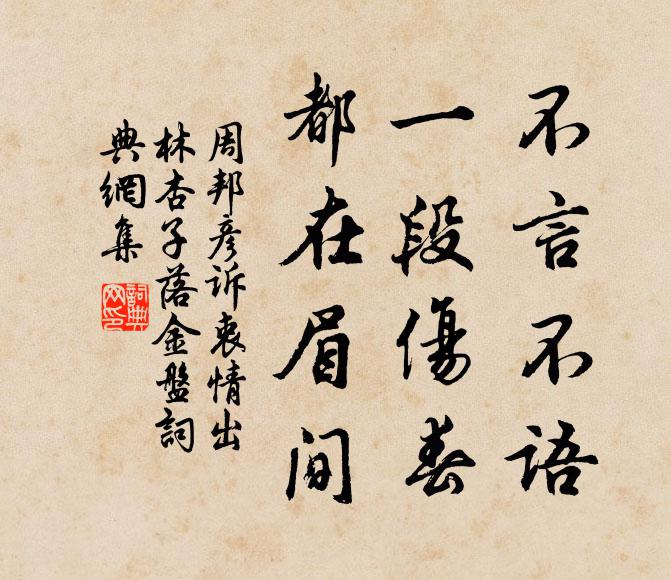 不言不语
一段傷春
都在眉間
周邦彦诉衷情出
林杏子落金盤詞
典網集
詞典
网印